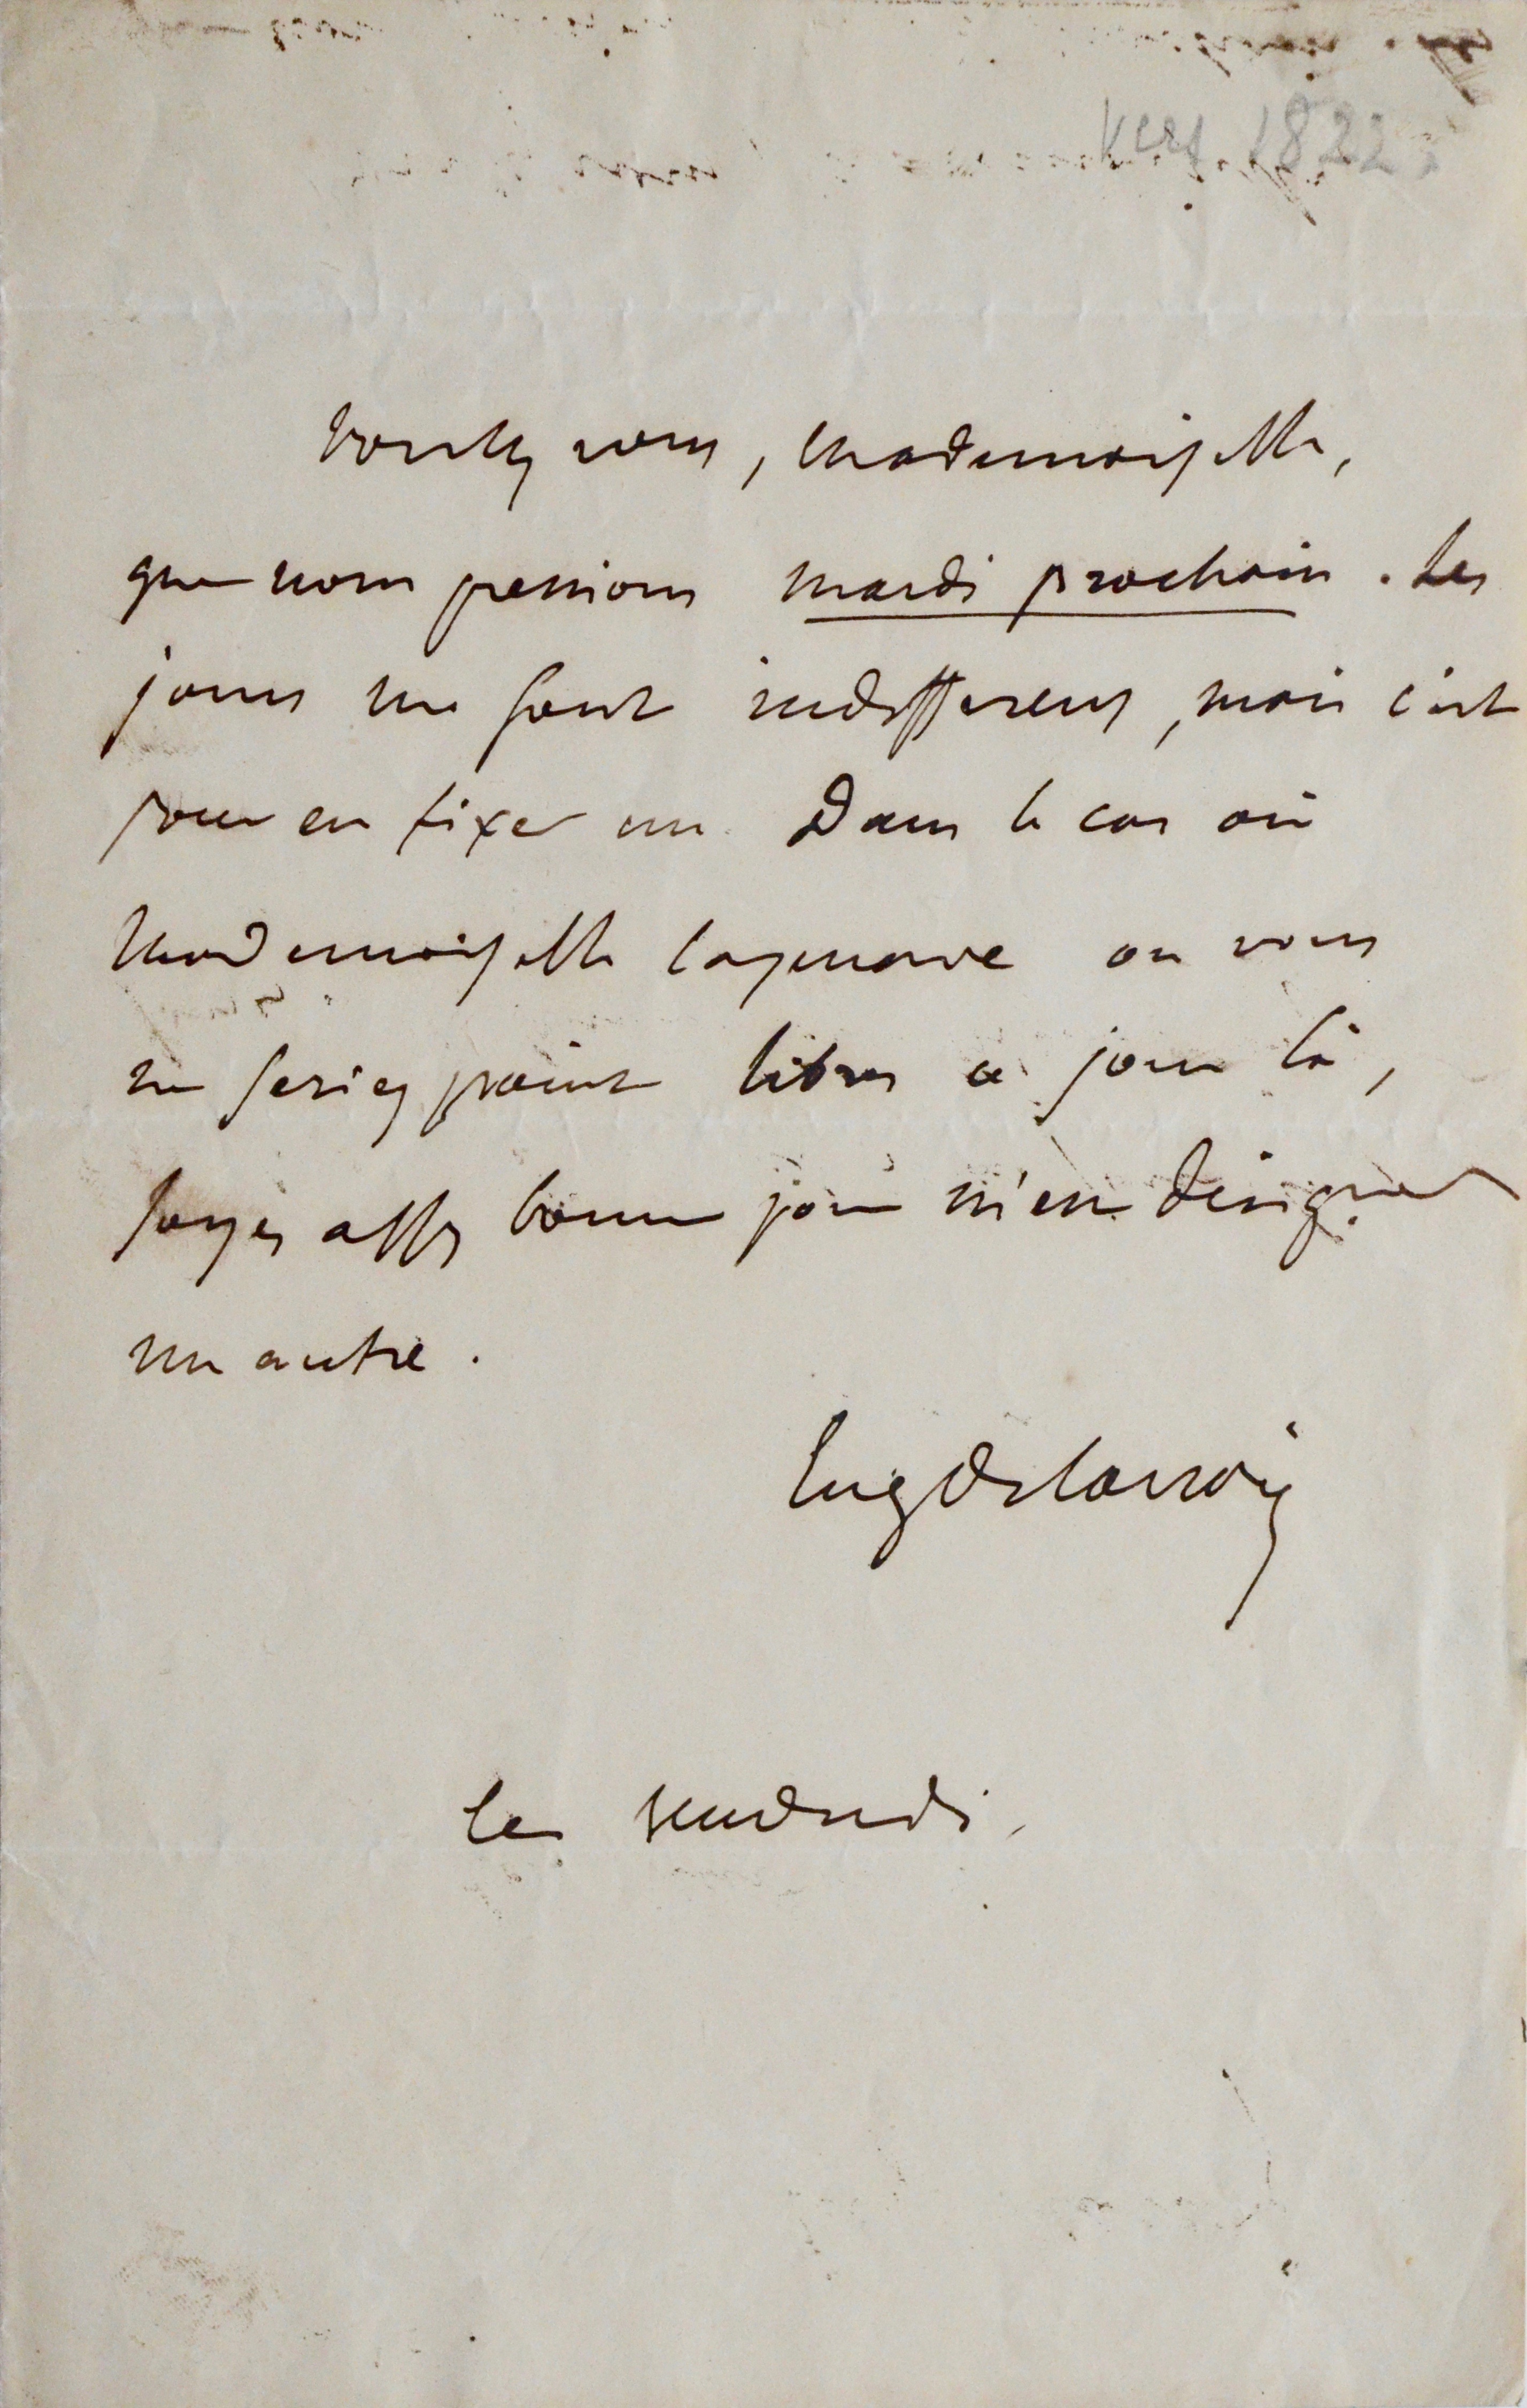 vers 1822
Voulez vous, Mademoiselle,
que nous prenions mardi prochain. Les
jours me sont indifferens, mais c'est
pour en fixer un. Dans le cas où
Mademoiselle ou vous
ne seriez point libres ce jour là,
soyez assez bonne pour m'en designer
un autre.
Eug Delacroix
Ce vendredi.